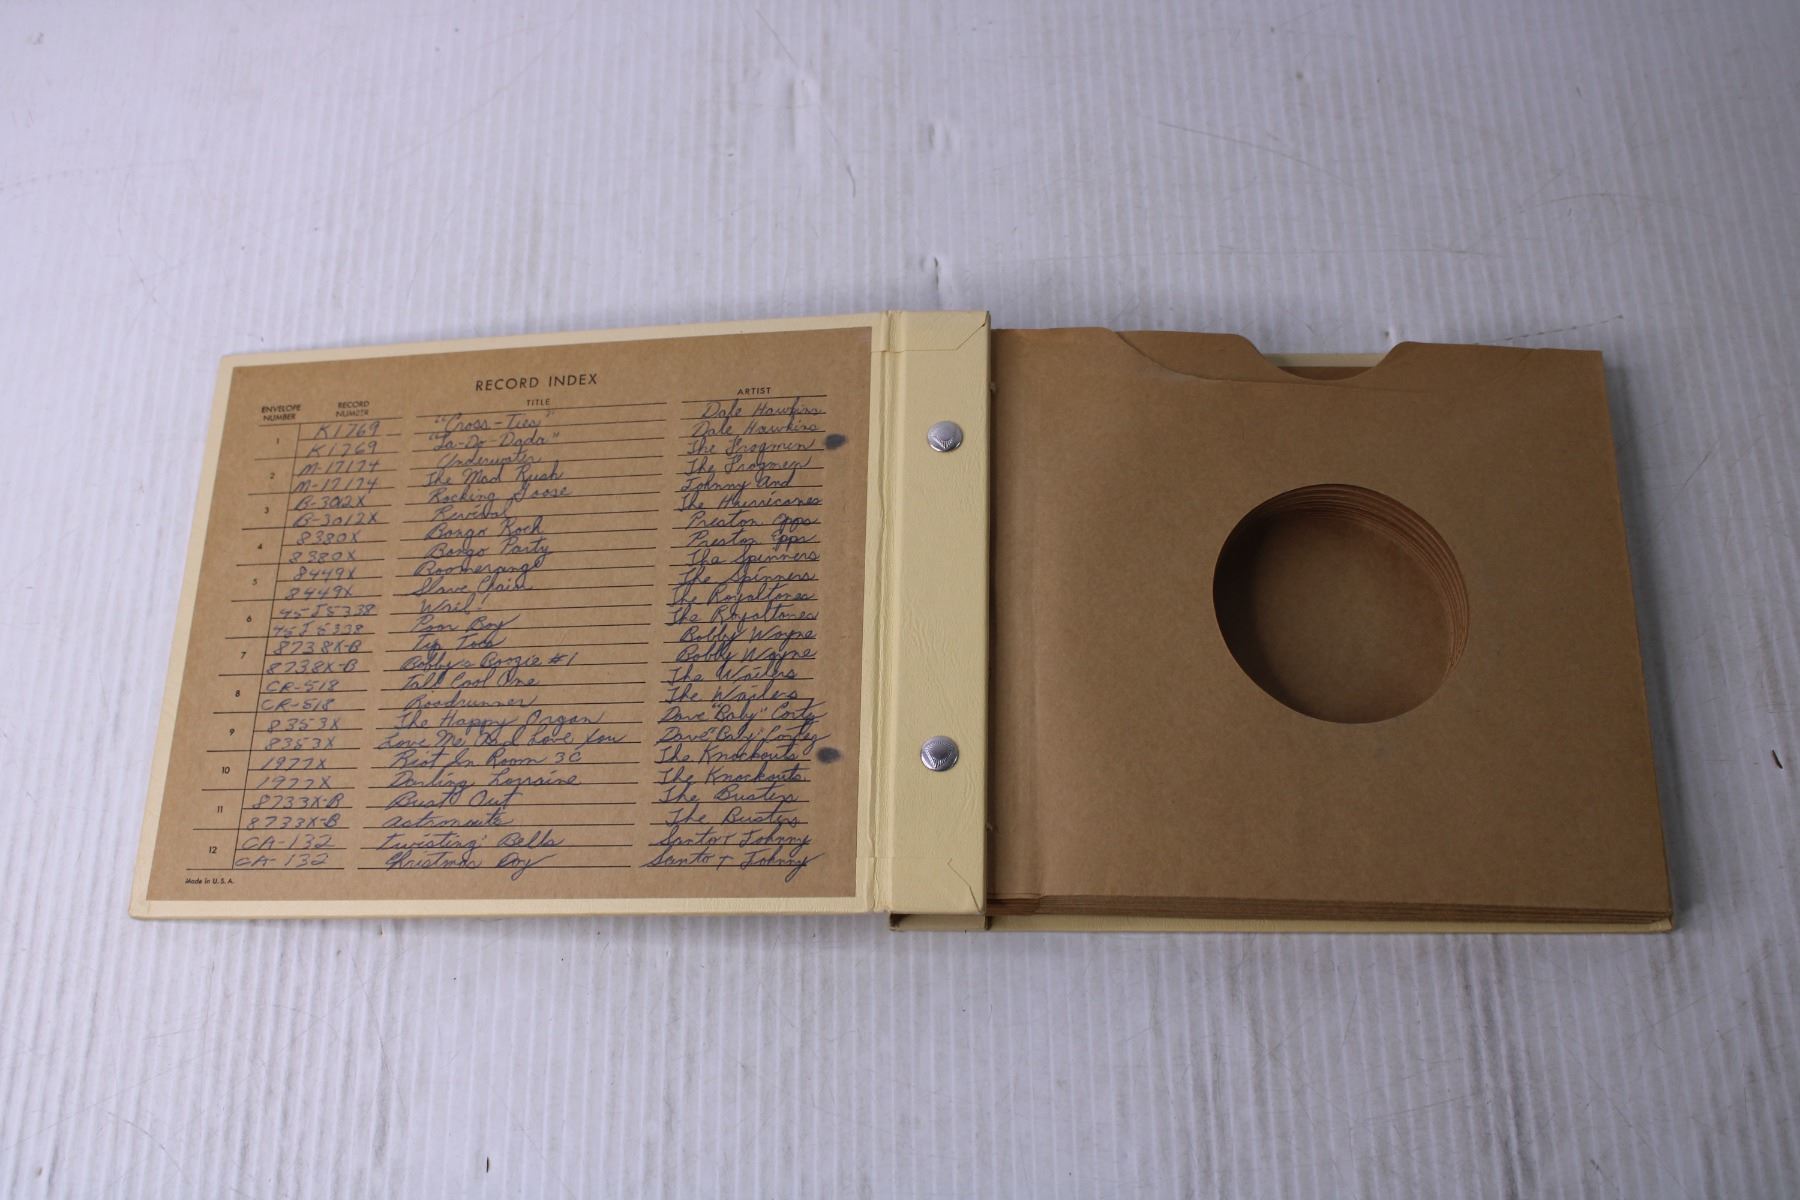 RECORD INDEX
ENVELOPE NUMBER RECORD NUMBER TITLE ARTIST
1 K1769 "Cross-Ties" Dale Hawkins
K1769 "La-Do-Dada" Dale Hawkins
2 M-17174 Underwater The Frogmen
M-17174 The Mad Rush The Frogmen
3 B-3012X Rocking Goose Johnny And
B-3012X Revival The Hurricanes
4 8380X Bongo Rock Preston Epps
8380X Bongo Party Preston Epps
5 8449X Boomerang The Spinners
8449X Slave Chain The Spinners
6 45J5338 Wail! The Royaltones
45J5338 Poor Boy The Royaltones
7 8738X-B Tip Toes Bobby Wayne
8738X-B Bobby's Boogie #1 Bobby Wayne
8 CR-518 Tall Cool One The Wailers
CR-518 Roadrunner The Wailers
9 8353X The Happy Organ Dave "Baby" Cortez
8353X Love Me And Love You Dave "Baby" Cortez
10 1977X Riot In Room 3C The Knockouts
1977X Darling Lorraine The Knockouts
11 8733X-B Bust Out The Busters
8733X-B Astronauts The Busters
12 CA-132 Twisting Bells Santo + Johnny
CA-132 Christmas Day Santo + Johnny
Made in U.S.A.